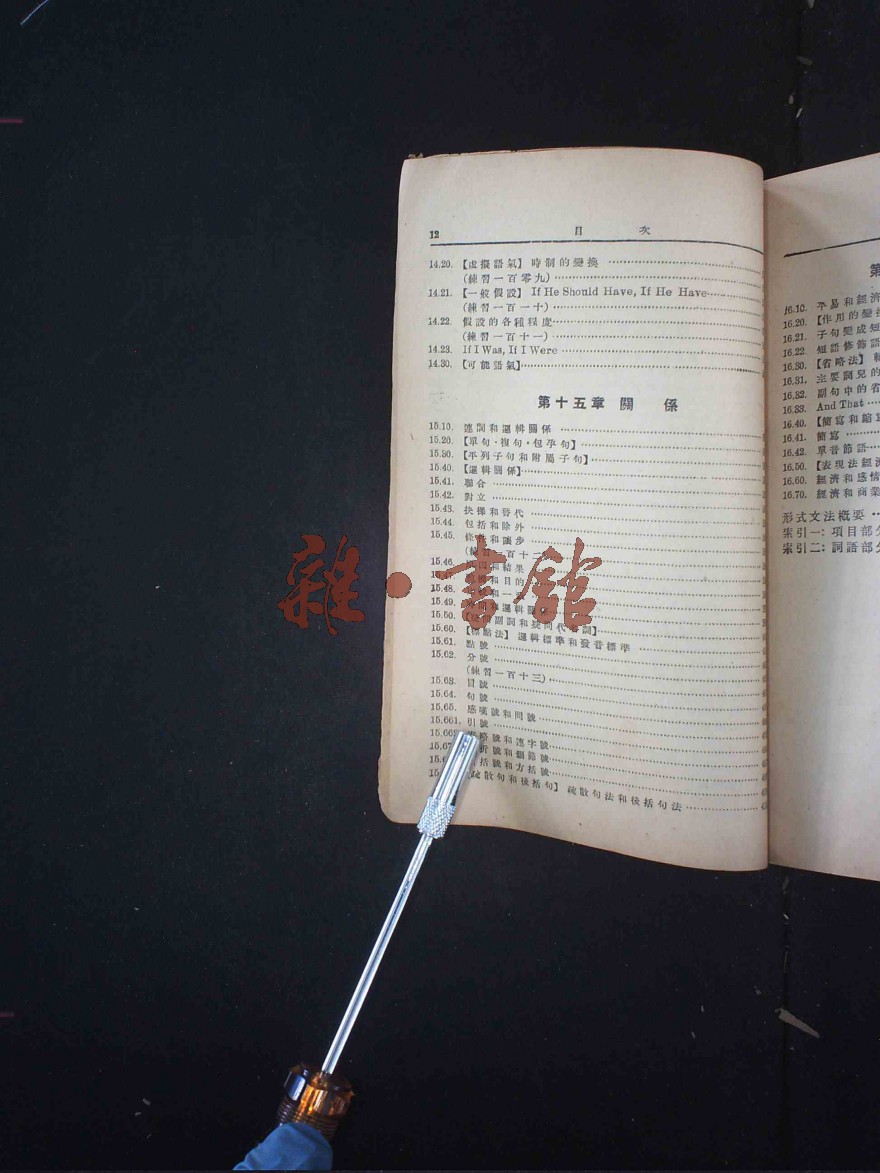 12 目 次
14.20. 【虛擬語氣】 時制的變換
(練習一百零九)
14.21. 【一般假設】 If He Should Have, If He Have
(練習一百一十)
14.22. 假設的各種程度
(練習一百十一)
14.23. If I Was, If I Were
14.30. 【可能語氣】
第十五章 關 係
15.10. 連詞和邏輯關係
15.20. 【單句·複句·包孕句】
15.30. 【平列子句和附屬子句】
15.40. 【邏輯關係】
15.41. 聯合
15.42. 對立
15.43. 抉擇和替代
15.44. 包括和除外
15.45. 條 和讓步
(練習一百十二)
15.46. 和結果
和目的
15.48. 和一
15.49. 和邏輯關
15.50. 副詞和 問代 詞】
15.60. 【標點法】 邏輯標準和發音標準
15.61. 點號
15.62. 分號
(練習一百十三)
15.63. 冒號
15.64. 句號
15.65. 感嘆號和問號
15.661. 引號
15.66 略號和連字號
15.67 折號和刪節號
15.6 括號和方括號
15. 疏散句和後括句】 疏散句法和後括句法
第
16.10. 平易和經濟
16.20. 【作用的變
16.21. 子句變成短
16.22. 短語修飾語
16.30. 【省略法】
16.31. 主要詞兒的
16.32. 副句中的省
16.33. And That
16.40. 【簡寫和縮寫
16.41. 簡寫
16.42. 單音節語
16.50. 【表現法經濟
16.60. 經濟和感情
16.70. 經濟和商業
形式文法概要
索引一: 項目部分
索引二: 詞語部分
雜·書館